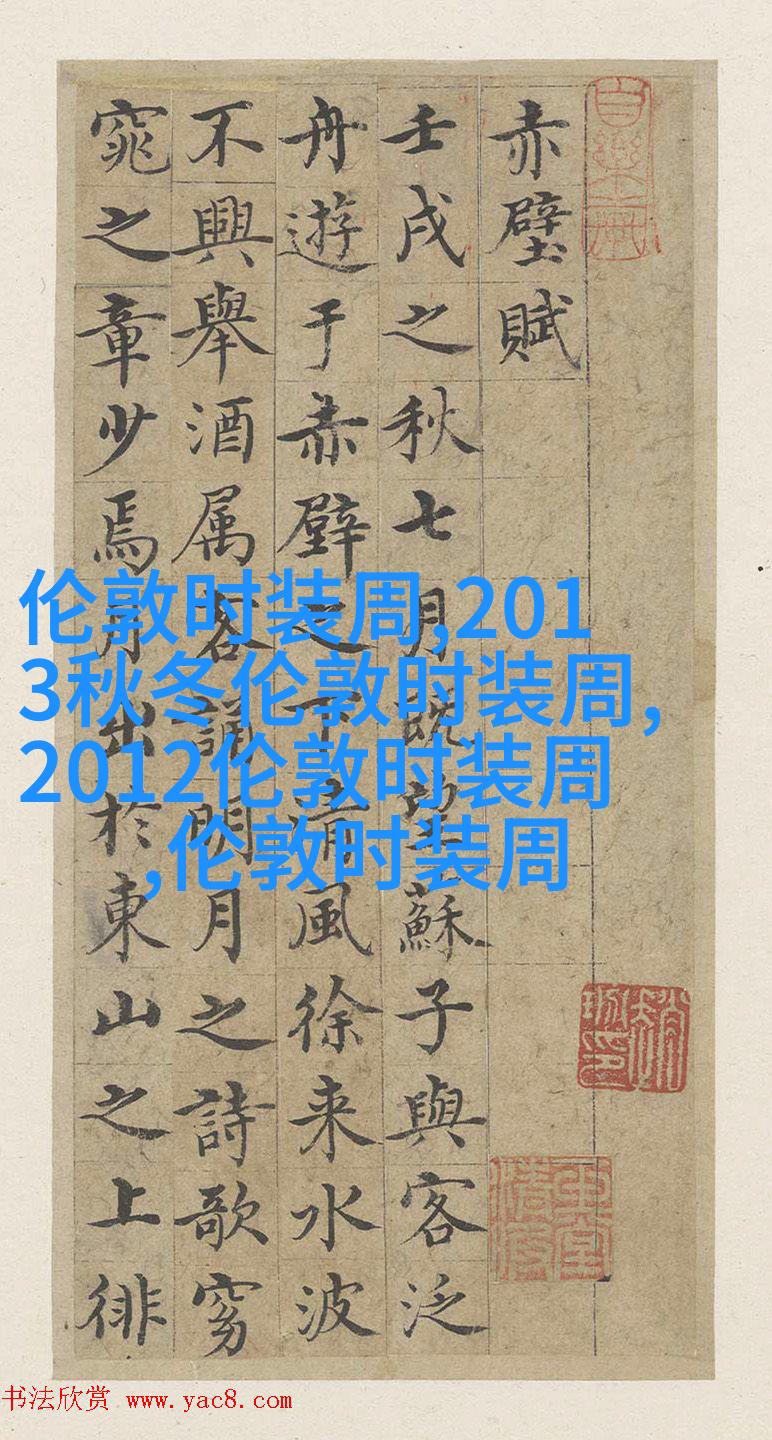 赤壁賦
壬戌之秋七月既望蘇子與客泛
舟遊于赤壁之下清風徐来水波
不興舉酒属客誦明月之詩歌窈
窕之章少焉月出於東山之上徘
伦敦时装周,201
3秋冬伦敦时装周,
2012伦敦时装周
,伦敦时装周
书法欣赏 www.yac8.com